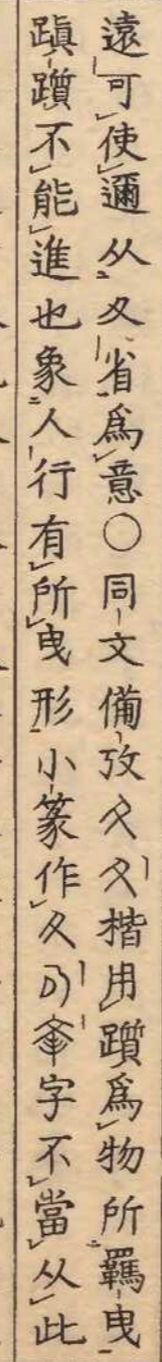 遠可使邇从夂省爲意○同文備攷夂夂楷用躓爲物所羈曳
蹎躓不能進也象人行有所曳形小篆作夂夆字不當从此